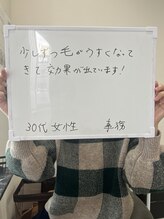 少しずつ毛がうすくなって
きて効果が出ています!
30代女性 事務